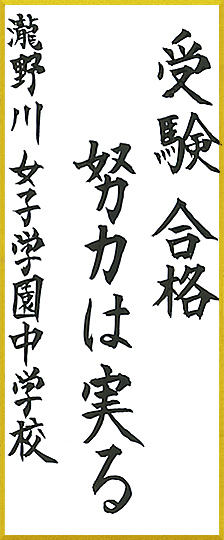 受験 合格
努力は実る
瀧野川 女子学園中学校